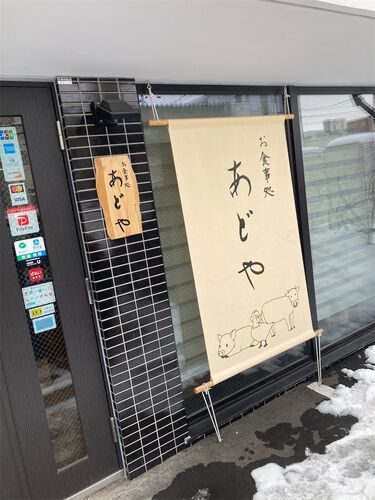 お食事処
あじや
お食事処
あじや
JCB
VISA
PayPay